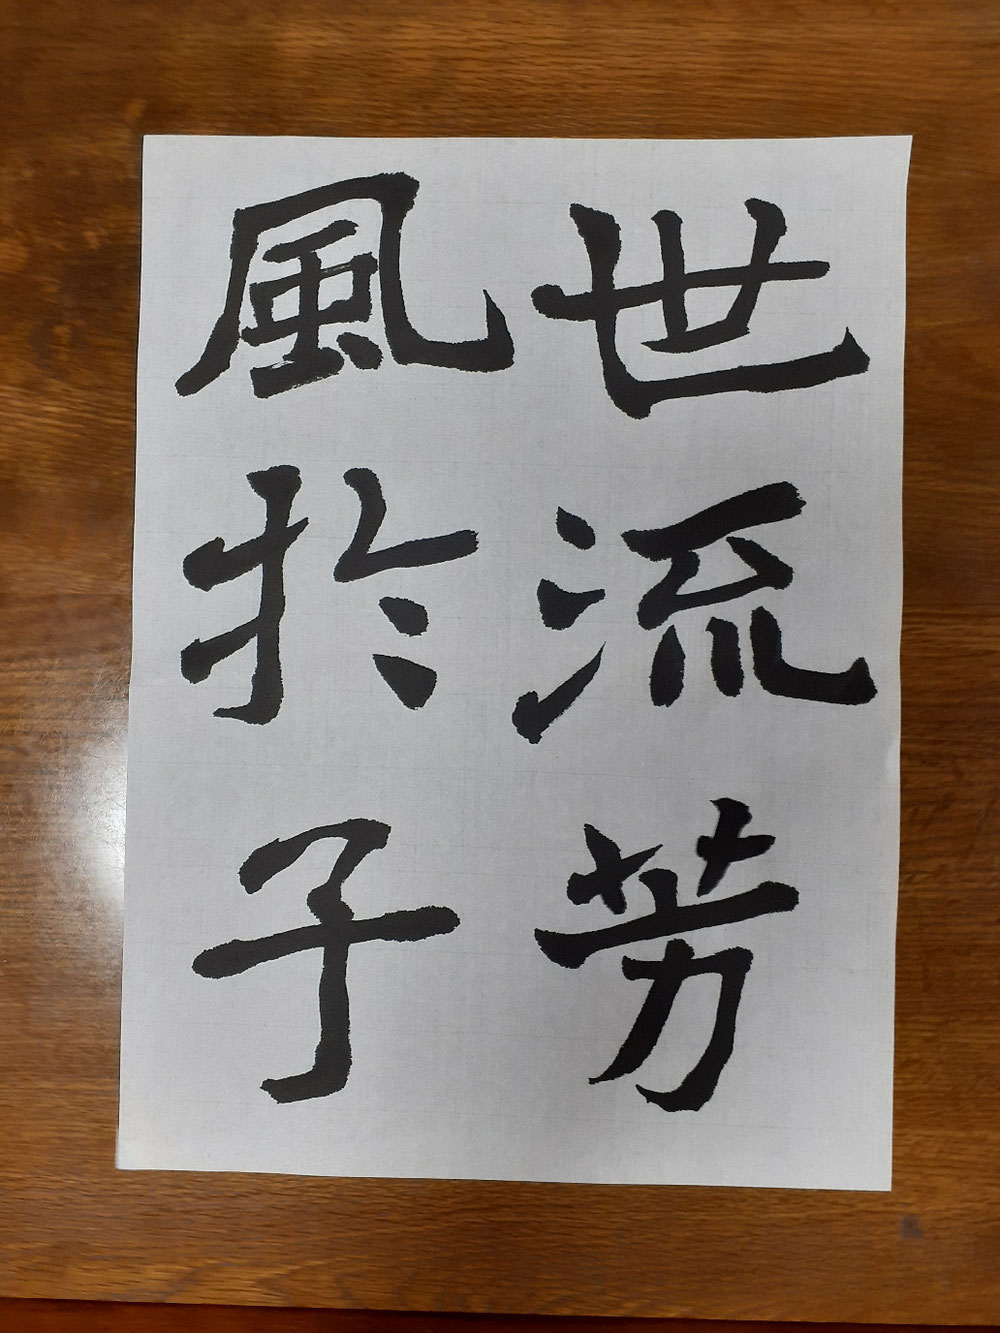 世流芳
風於子